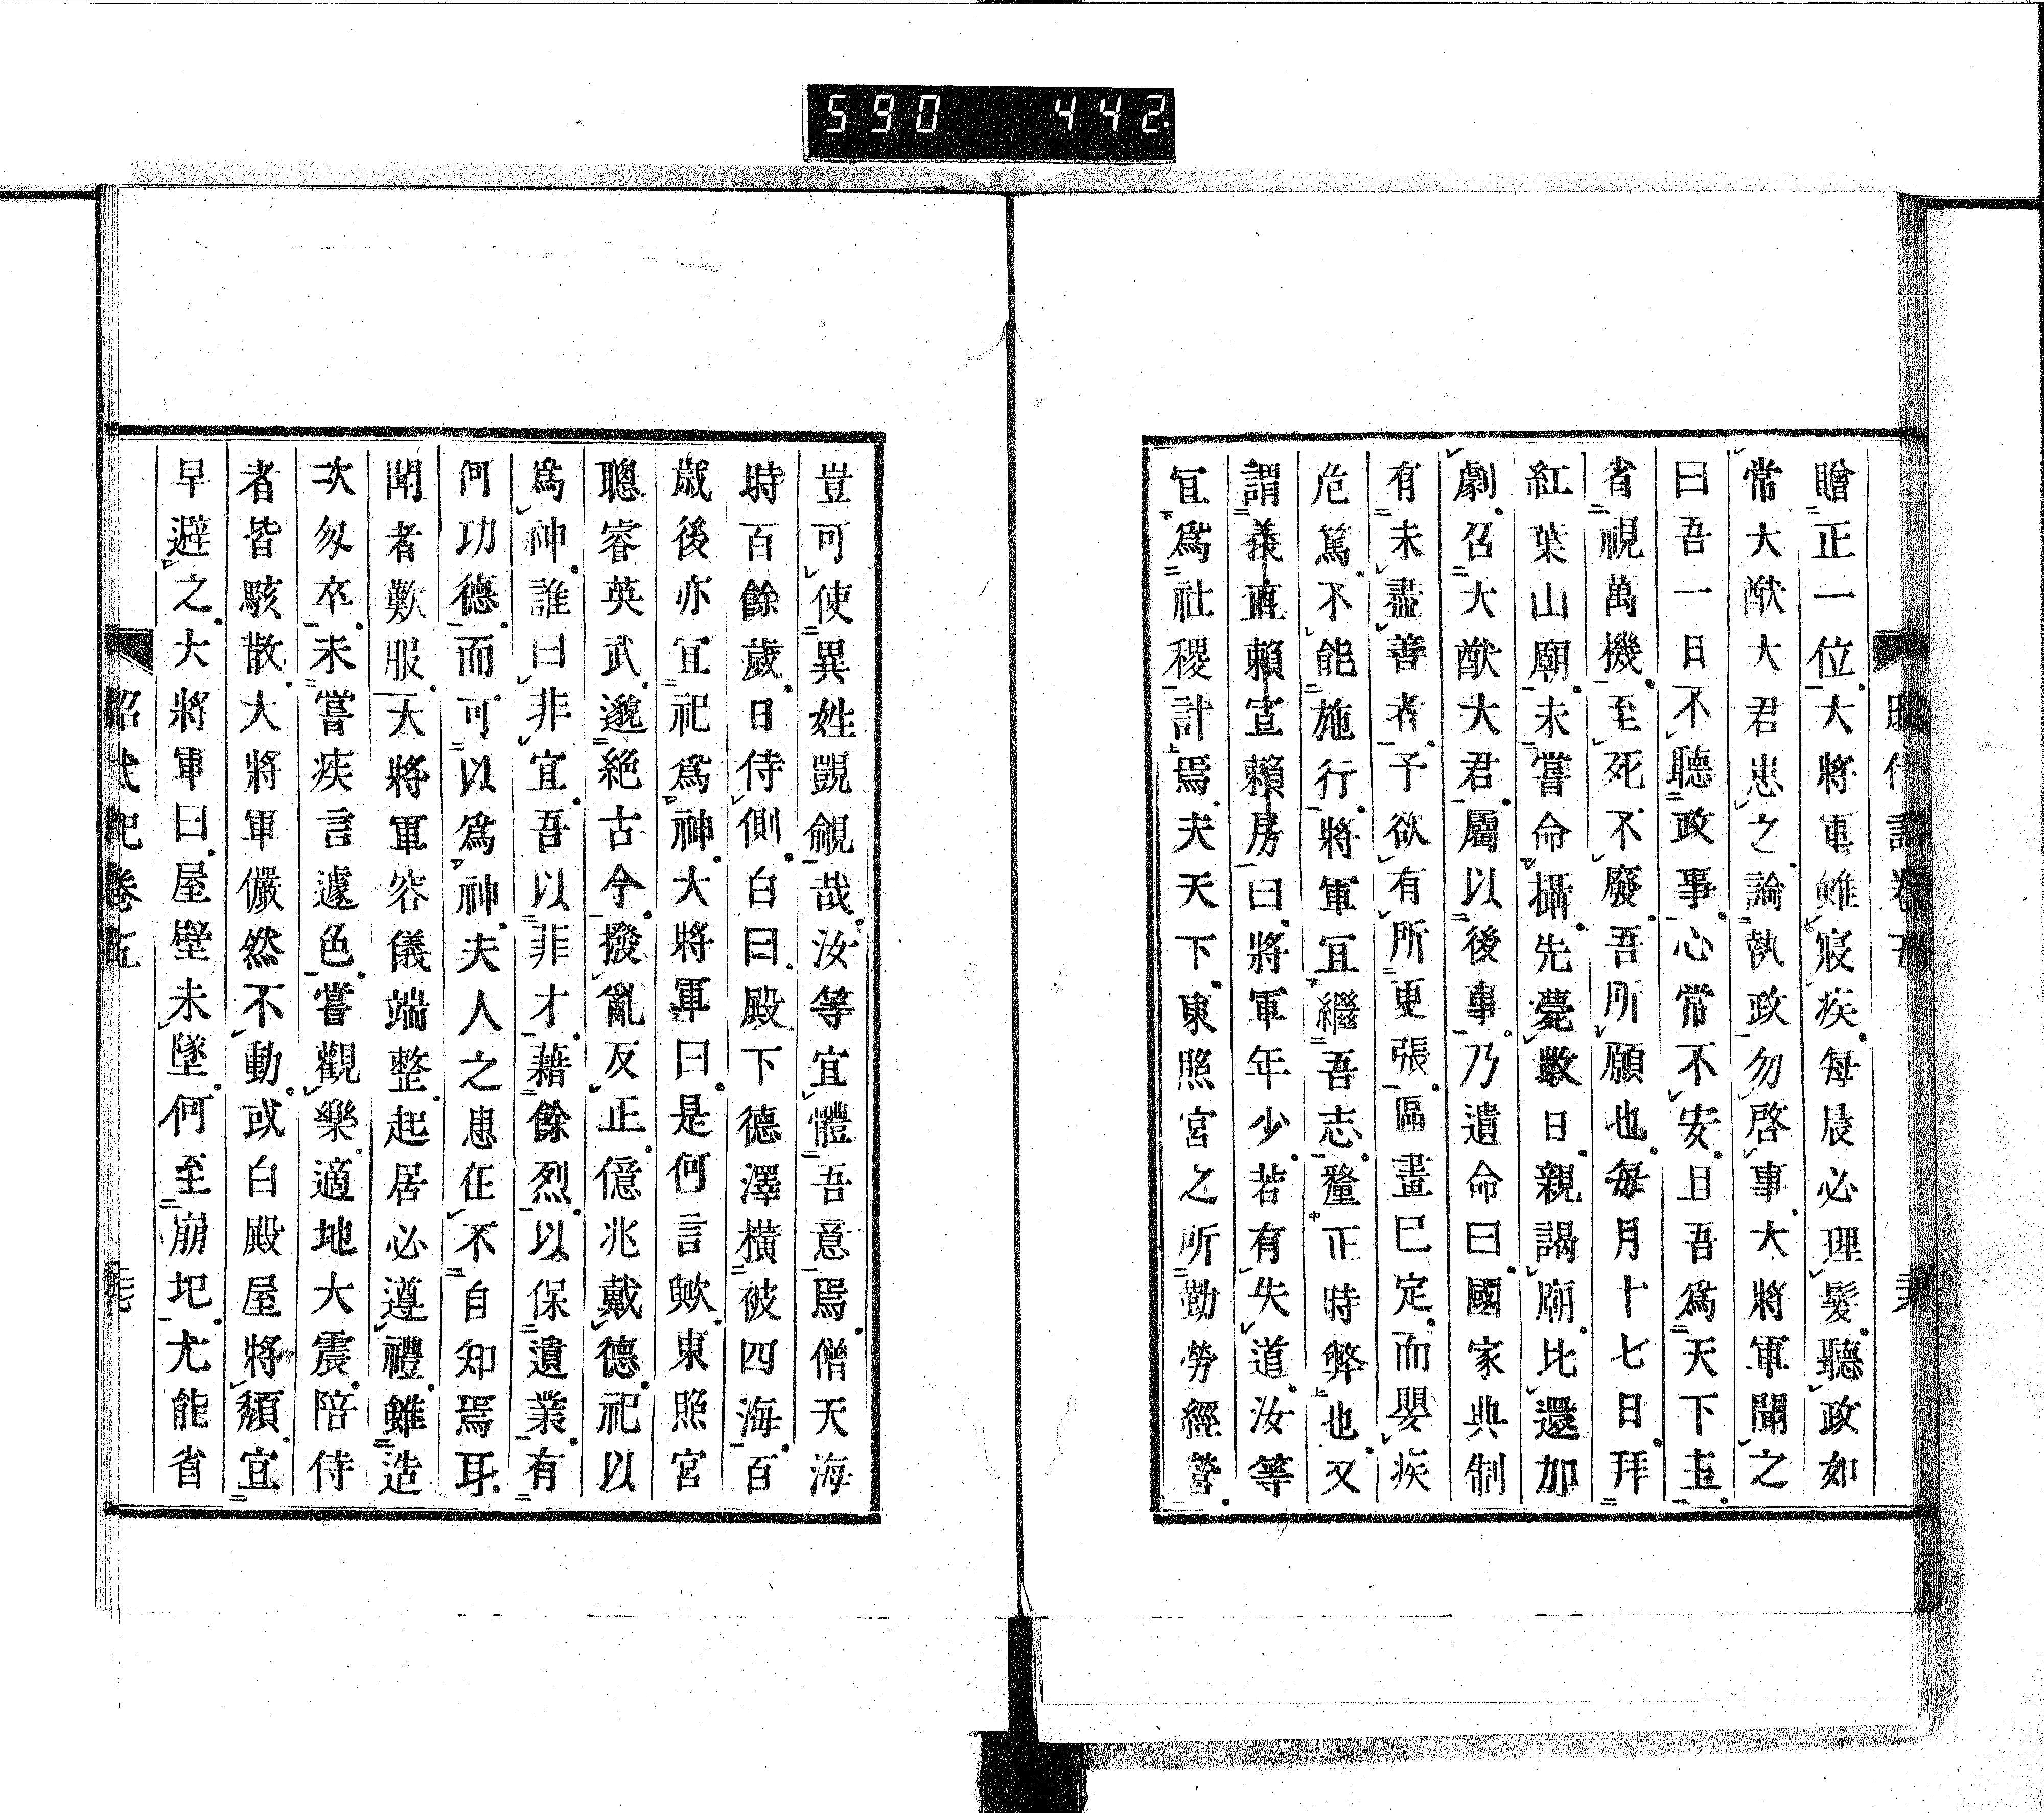 590 442
昭代記卷五
贈正一位大將軍雖寢疾每晨必理髮聽政如
常大猷大君患之諭執政勿啓事大將軍聞之
曰吾一日不聽政事心常不安且吾爲天下主
省視萬機至死不廢吾所願也每月十七日拜
紅葉山廟未嘗命攝先薨數日親謁廟比還加
劇召大猷大君屬以後事乃遺命曰國家典制
有未盡善者予欲有所更張區畫已定而嬰疾
危篤不能施行將軍宜繼吾志釐正時弊也又
謂義直賴宣賴房曰將軍年少若有失道汝等
宜爲社稷計焉夫天下東照宮之所勤勞經營
豈可使異姓覬覦哉汝等宜體吾意焉僧天海
時百餘歲日侍側白曰殿下德澤橫被四海百
歲後亦宜祀爲神大將軍曰是何言歟東照宮
聰睿英武邈絕古今撥亂反正億兆戴德祀以
爲神誰曰非宜吾以菲才藉餘烈以保遺業有
何功德而可以爲神夫人之患在不自知焉耳
聞者歎服大將軍容儀端整起居必遵禮雖造
次匆卒未嘗疾言遽色嘗觀樂適地大震陪侍
者皆駭散大將軍儼然不動或白殿屋將頽宜
早避之大將軍曰屋壁未墜何至崩圯尤能省
昭代記卷五